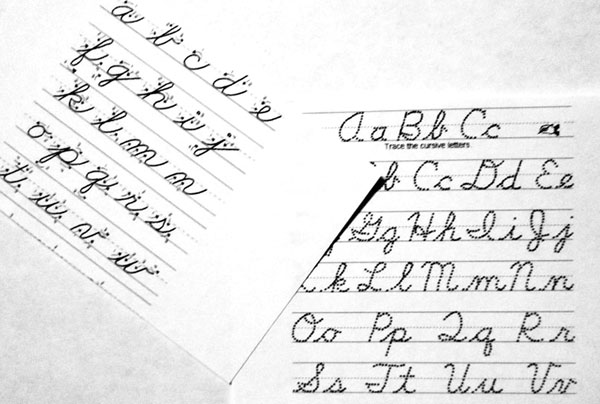 a b c d e
f g h i j
k l m n
o p q r s
t u v w
Aa Bb Cc
Trace the cursive letters.
b Cc Dd Ee
Gg Hh Ii Jj
k Ll Mm Nn
Oo Pp Qq Rr
Ss Tt Uu Vv